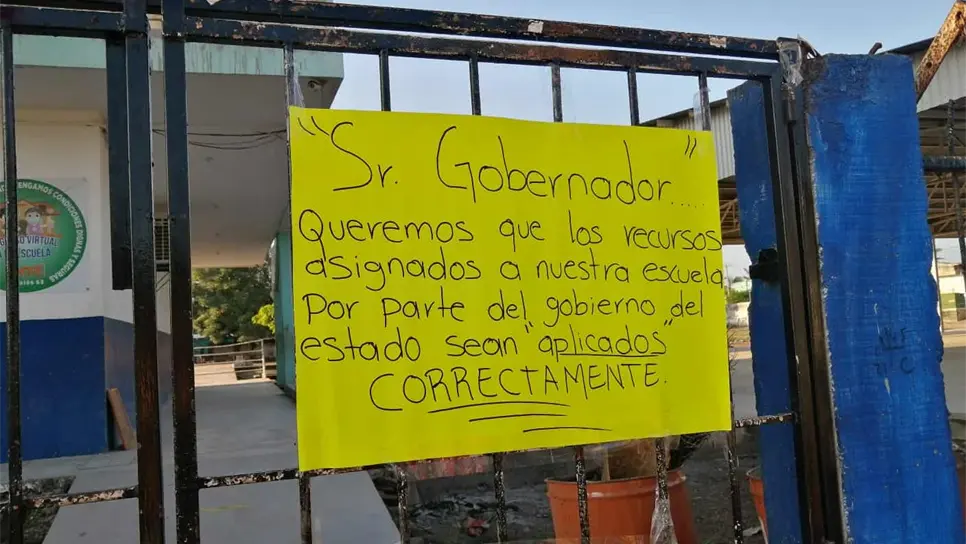 "Sr. Gobernador....."
Queremos que los recursos
asignados a nuestra escuela
Por parte del gobierno del
estado sean "aplicados"
CORRECTAMENTE.
TENGAMOS CONDICIONES DIGNAS Y SEGURAS
VIRTUAL
ESCUELA